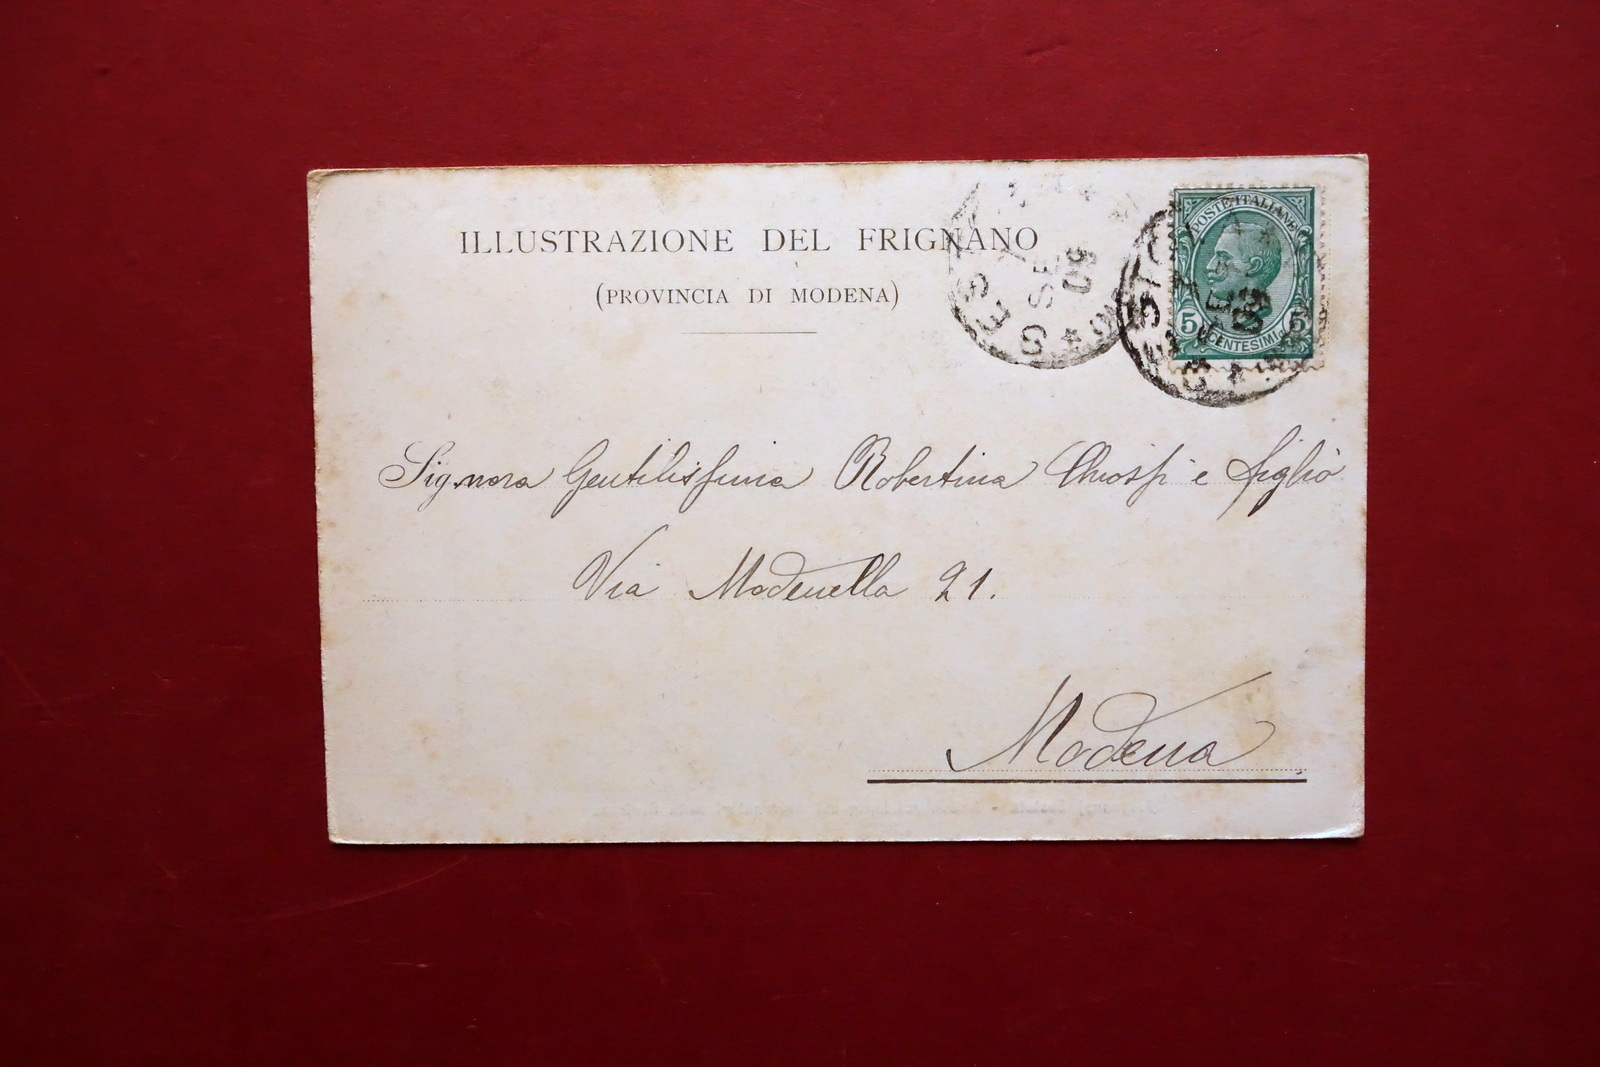 ILLUSTRAZIONE DEL FRIGNANO
(PROVINCIA DI MODENA)
POSTE ITALIANE
5 5
CENTESIMI
SE
09
Signora Gentilissima Robertina e figlio
Via Modenella 21.
Modena